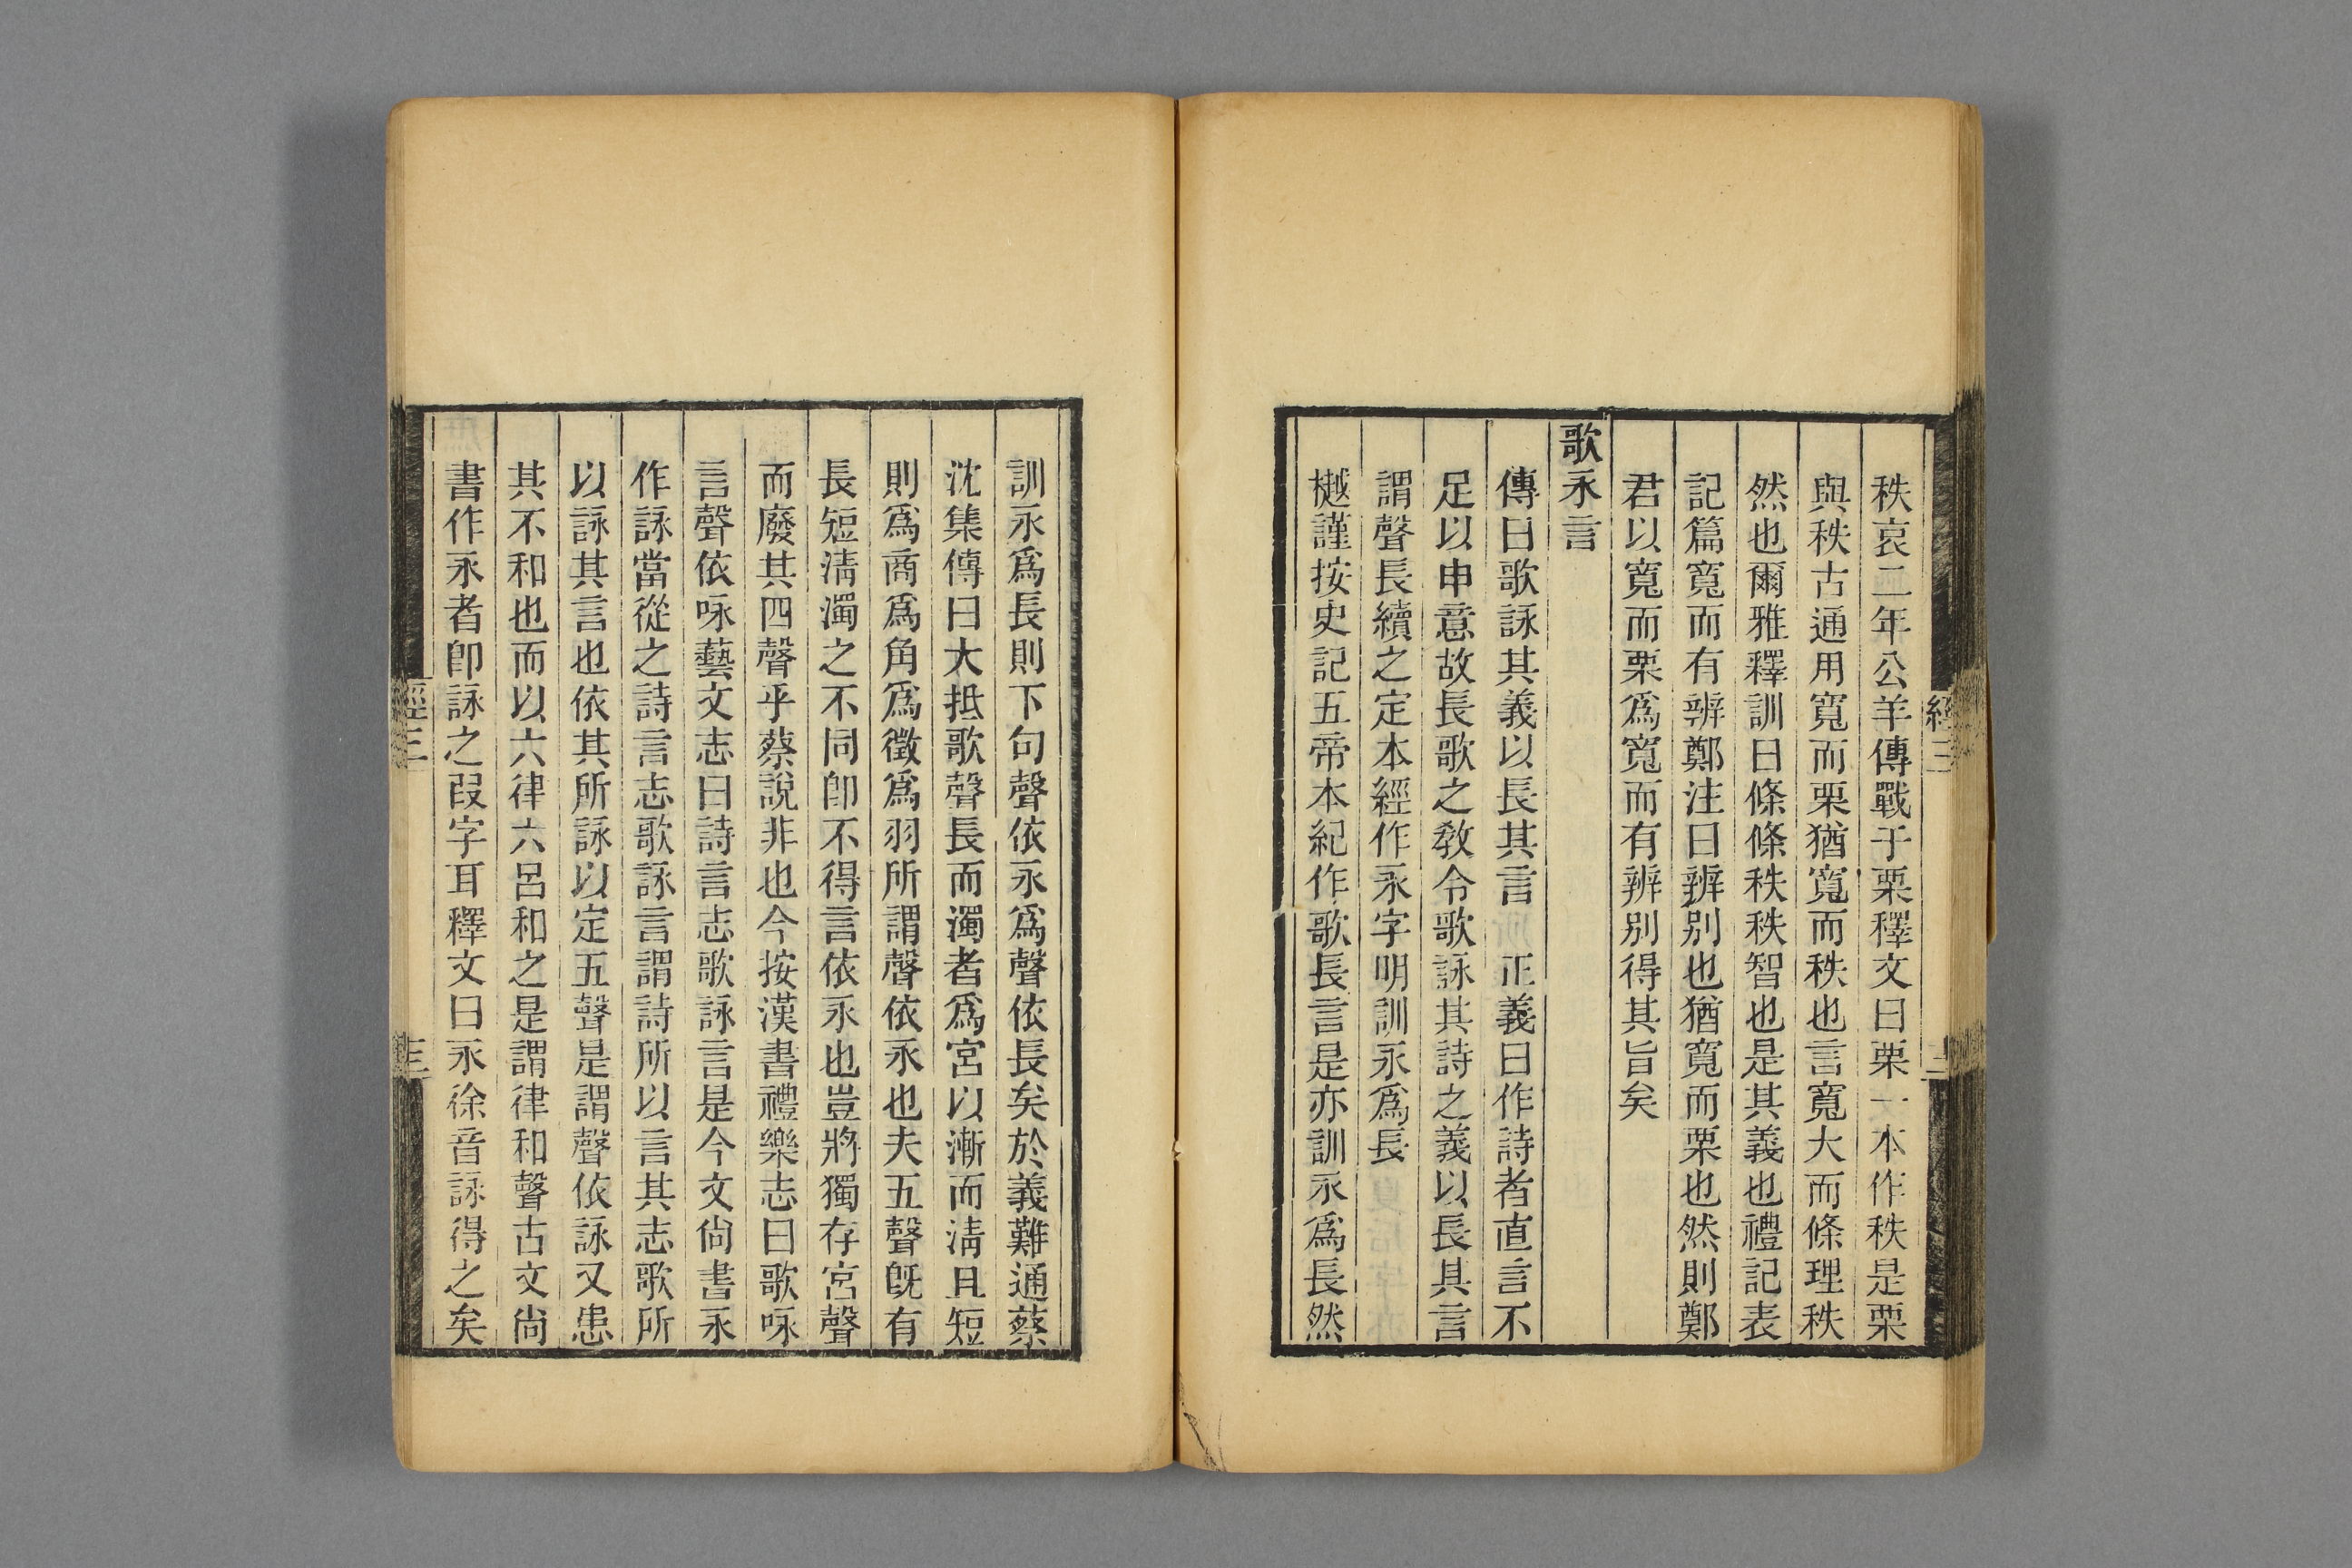 秩哀二年公羊傳戰于栗釋文曰栗一本作秩是栗
與秩古通用寬而栗猶寬而秩也言寬大而條理秩
然也爾雅釋訓曰條條秩秩智也是其義也禮記表
記篇寬而有辨鄭注曰辨别也猶寬而栗也然則鄭
君以寬而栗爲寬而有辨别得其旨矣
歌永言
傳曰歌詠其義以長其言 正義曰作詩者直言不
足以申意故長歌之敎令歌詠其詩之義以長其言
謂聲長續之定本經作永字明訓永爲長
樾謹按史記五帝本紀作歌長言是亦訓永爲長然
訓永爲長則下句聲依永爲聲依長矣於義難通蔡
沈集傳曰大抵歌聲長而濁者爲宮以漸而淸且短
則爲商爲角爲徵爲羽所謂聲依永也夫五聲旣有
長短淸濁之不同卽不得言依永也豈將獨存宮聲
而廢其四聲乎蔡說非也今按漢書禮樂志曰歌咏
言聲依咏藝文志曰詩言志歌詠言是今文尙書永
作詠當從之詩言志歌詠言謂詩所以言其志歌所
以詠其言也依其所詠以定五聲是謂聲依詠又患
其不和也而以六律六呂和之是謂律和聲古文尙
書作永者卽詠之叚字耳釋文曰永徐音詠得之矣
經三
經三